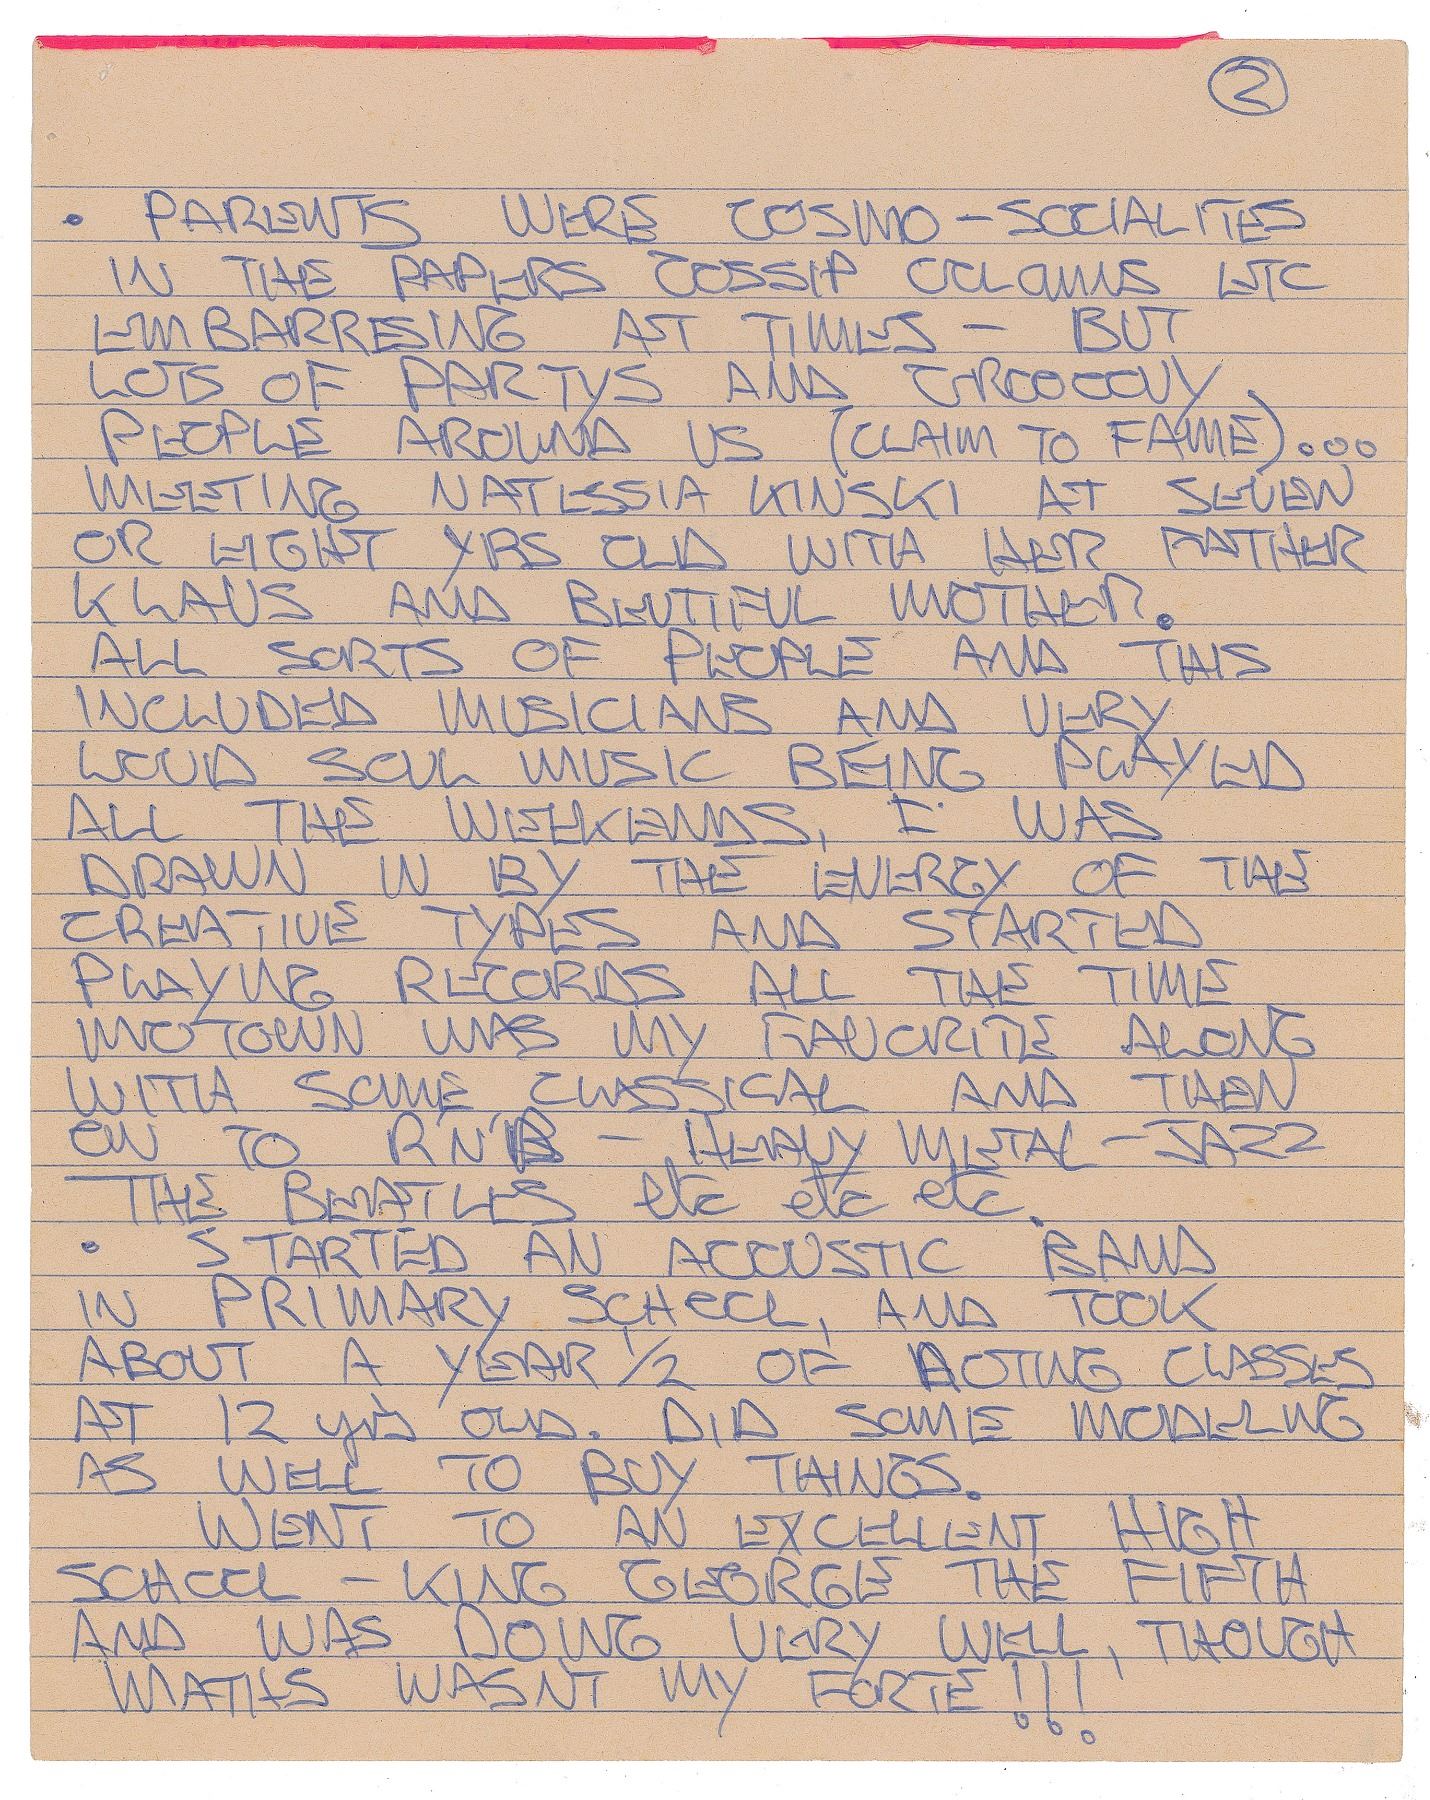 2
• PARENTS WERE COSMO-SOCIALITES
IN THE PAPERS GOSSIP COLOUMS ETC
EMBARRESING AT TIMES - BUT
LOTS OF PARTYS AND GROOOOVY
PEOPLE AROUND US (CLAIM TO FAME)...
MEETING NATESSIA KINSKI AT SEVEN
OR EIGHT YRS OLD WITH HER FATHER
KLAUS AND BEUTIFUL MOTHER.
ALL SORTS OF PEOPLE AND THIS
INCLUDED MUSICIANS AND VERY
LOUD SOUL MUSIC BEING PLAYED
ALL THE WEEKENDS, I WAS
DRAWN IN BY THE ENERGY OF THE
CREATIVE TYPES AND STARTED
PLAYING RECORDS ALL THE TIME
MOTOWN WAS MY FAVORITE ALONG
WITH SOME CLASSICAL AND THEN
ON TO R'N'B - HEAVY METAL - JAZZ
THE BEATLES etc etc etc.
• STARTED AN ACCOUSTIC BAND
IN PRIMARY SCHOOL, AND TOOK
ABOUT A YEAR 1/2 OF ACTING CLASSES
AT 12 yrs OLD. DID SOME MODELING
AS WELL TO BUY THINGS.
WENT TO AN EXCELLENT HIGH
SCHOOL - KING GEORGE THE FIFTH
AND WAS DOING VERY WELL, THOUGH
MATHS WASNT MY FORTE!!!